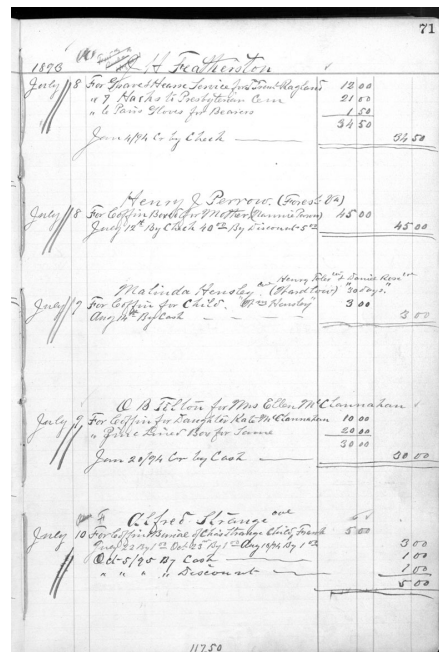 71
1893 H Featherston
July 8 For Hearse Service for Ragland 12 00
" 7 Hacks to Presbyterian Cem 21 00
" 6 Pairs Gloves for Bearers 1 50
34 50
Jan 4/94 Cr by Check 34 50
Henry J Perrow (Forest Va)
July 8 For Coffin Box for Mother 45 00
July 12th By Check 40 00 By Discount 5 00 45 00
Henry & Daniel
Malinda Hensley "30 days"
July 9 For Coffin for Child "Hensley" 3 00
Aug 14th By Cash 3 00
O B Tilton for Mrs Ellen McClannahan
July 9 For Coffin for Daughter Kate McClannahan 10 00
" Pine Box for Same 20 00
30 00
Jan 20/94 Cr by Cash 30 00
Alfred Strange
July 10 For Coffin & Burial of Child, Frank 5 00
July 22 By 1 00 Oct 23 By 1 00 Aug By 1 00 3 00
Oct 5/95 By Cash 1 00
" " " " Discount 1 00
5 00
117.50